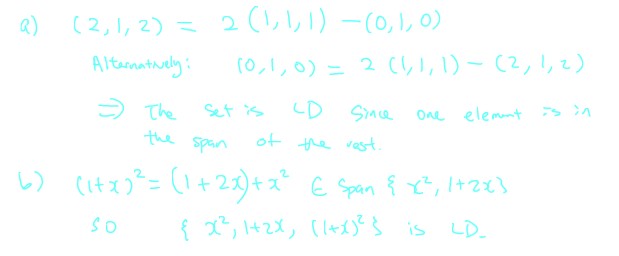 a) (2,1,2) = 2(1,1,1) -(0,1,0)
Alternatively: (0,1,0) = 2(1,1,1) - (2,1,2)
⇒ The set is LD since one element is in
the span of the rest.
b) (1+x)² = (1+2x)+x² ∈ Span { x², 1+2x}
so { x², 1+2x, (1+x)² } is LD.